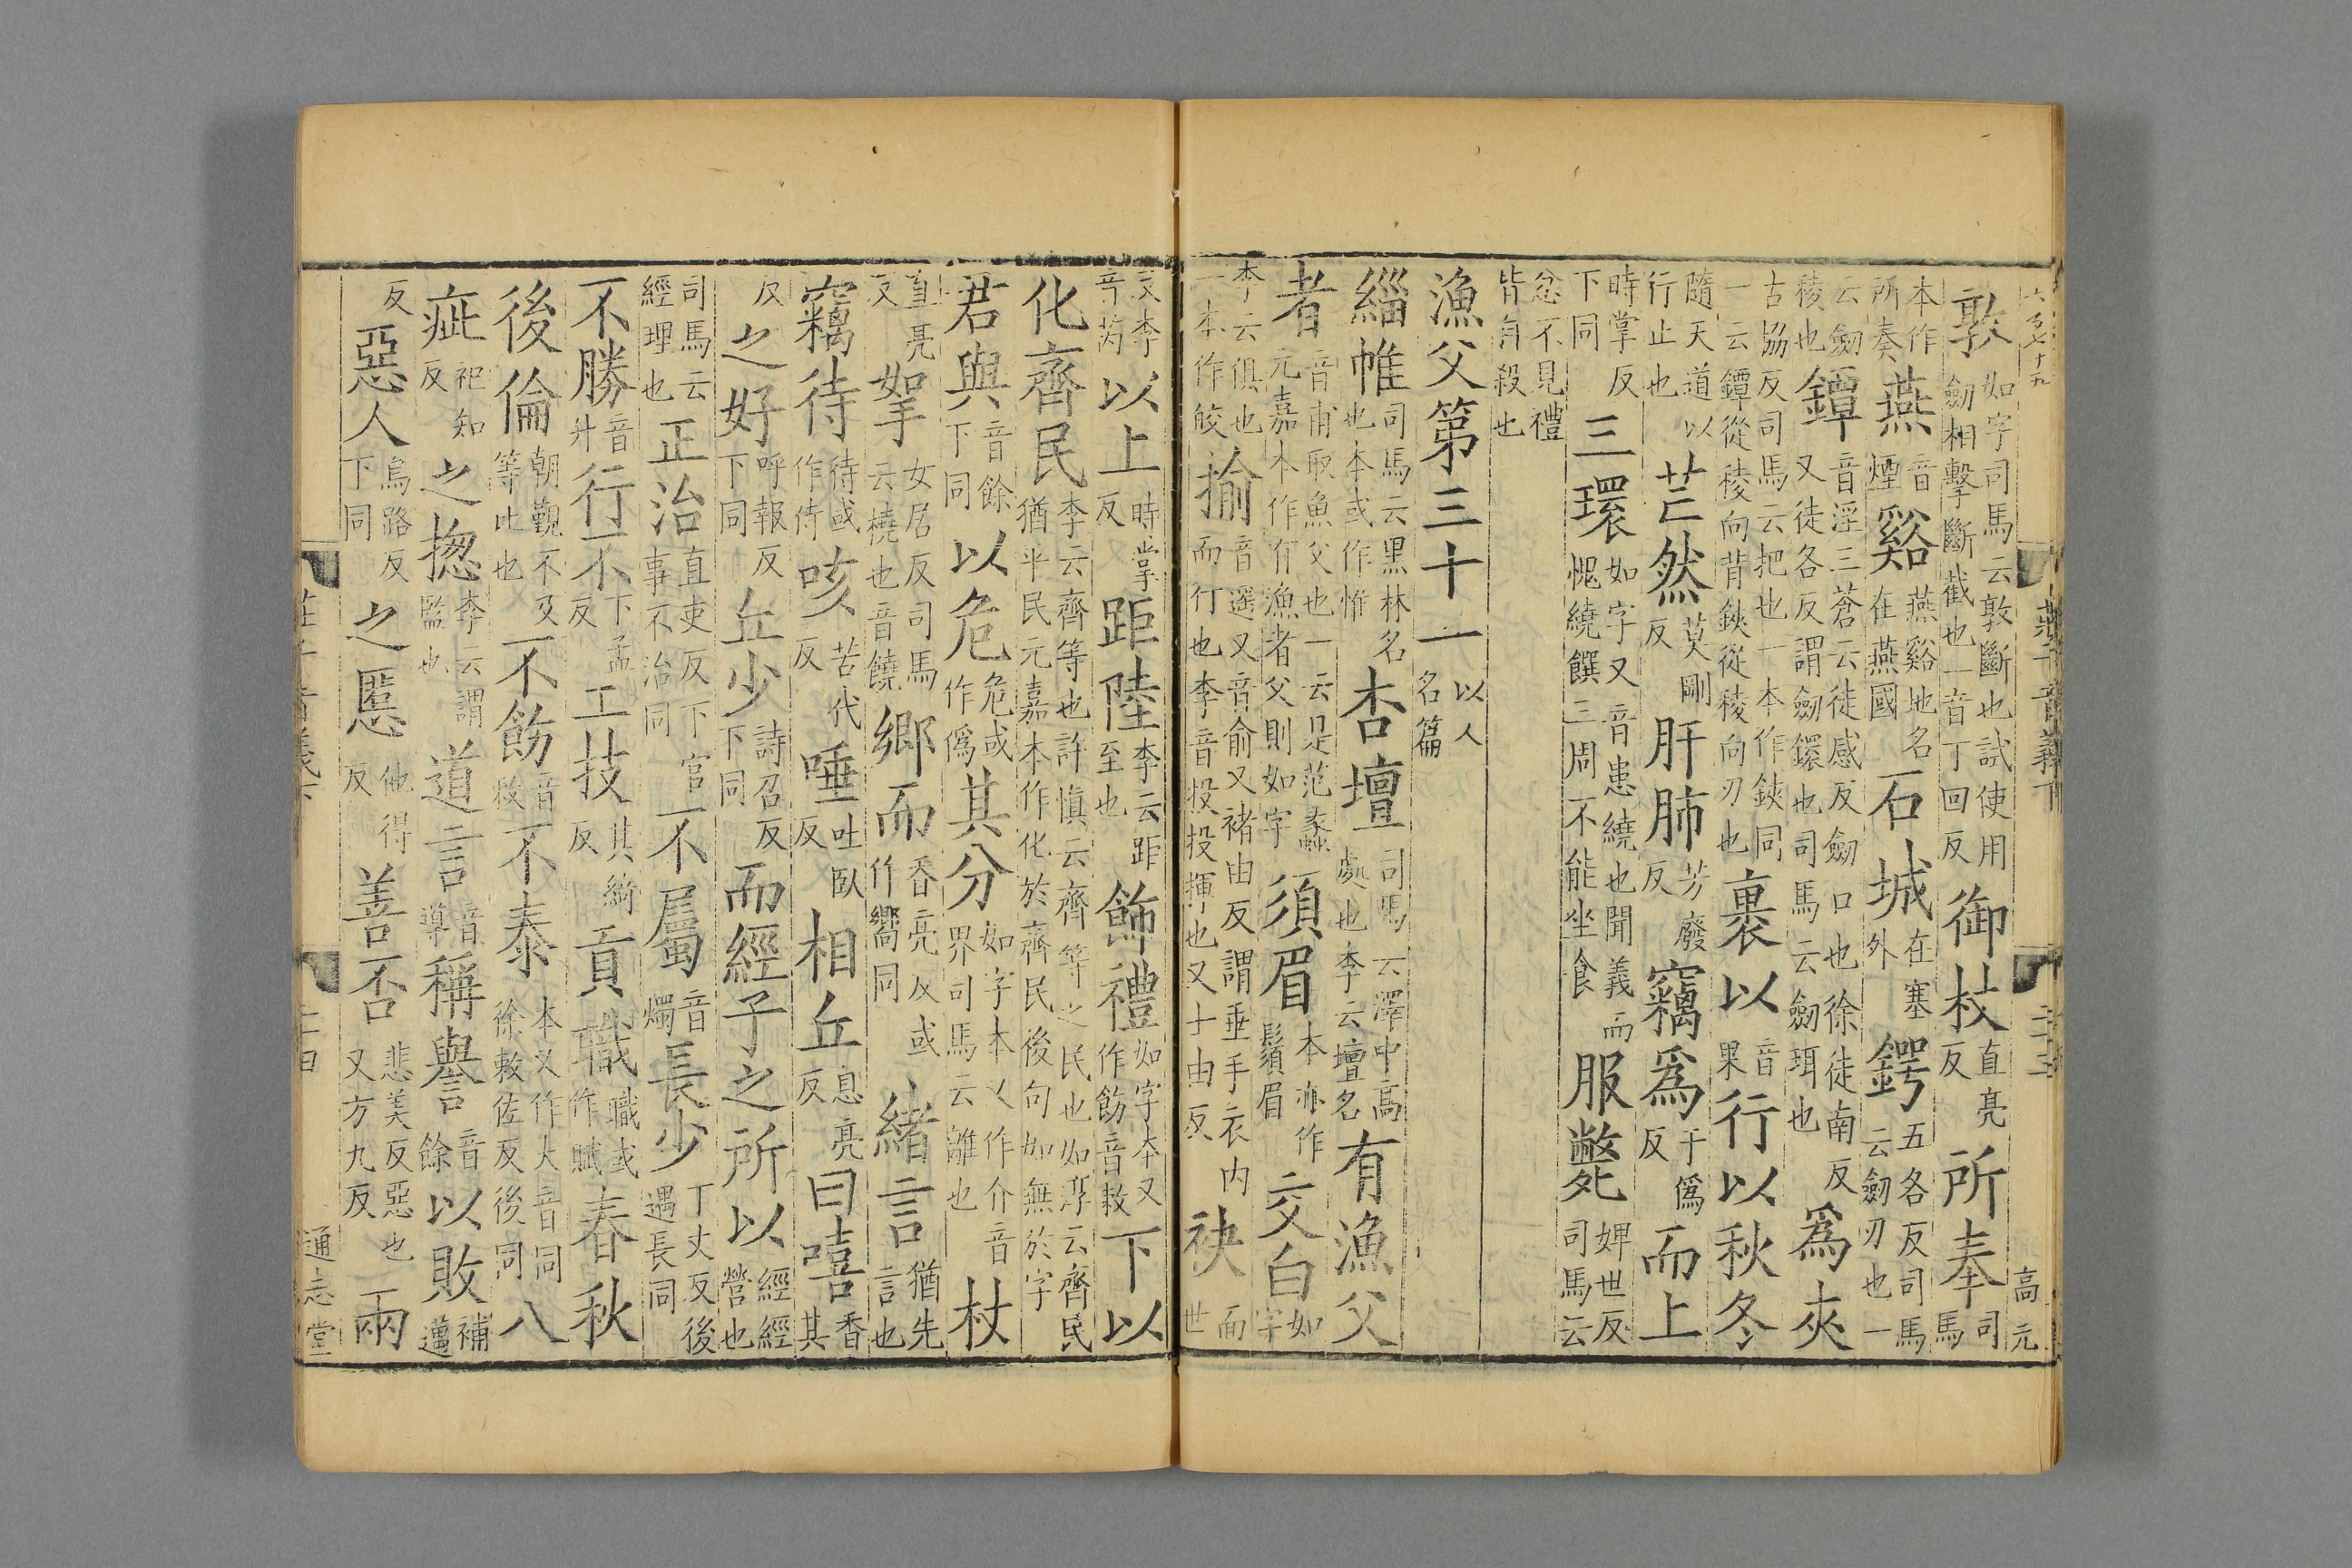 六百七十九 莊子音義下 二十三 高元
敦如字司馬云敦斷也試使用劒相擊斷截也一音丁回反御杖直亮反所奉司馬
本作所奏燕音煙谿燕谿地名在燕國石城在塞外鍔五各反司馬云劒刃也一
云劒稜也鐔音淫三蒼云徒感反劒口也徐徒南反又徒各反謂劒鐶也司馬云劒珥也爲夾
古協反司馬云把也一本作鋏同一云鐔從稜向背鋏從稜向刃也裹以音果行以秋冬
隨天道以行止也芒然莫剛反肝肺芳廢反竊爲于僞反而上
時掌反下同三環如字又音患繞也聞義而愧繞饌三周不能坐食服斃婢世反司馬云
忿不見禮皆自殺也
漁父第三十一以人名篇
緇帷司馬云黑林名也本或作惟杏壇司馬云澤中高處也李云壇名有漁父
者音甫取魚父也一云是范蠡元嘉本作有漁者父則如字須眉本亦作鬚眉交白如字
李云俱也一本作皎揄音遥又音俞又褚由反謂垂手衣内而行也李音投投揮也又士由反袂面世
反李音芮以上時掌反距陸李云距至也飾禮如字本又作飭音敕下以
化齊民李云齊等也許慎云齊等之民也如淳云齊民猶平民元嘉本作化於齊民後句如無於字
君與音餘下同以危危或作僞其分如字本又作介音界司馬云離也杖
直亮反如拏女居反司馬云橈也音饒鄉而香亮反或作嚮同緒言猶先言也
竊待待或作侍咳苦代反唾吐臥反相丘息亮反曰嘻香其
反之好呼報反下同丘少詩召反下同而經子之所以經經營也
司馬云經理也正治直吏反下官事不治同不屬音燭長少丁丈反後遇長同
不勝音升行不下孟反工技其綺反貢職職或作賦春秋
後倫朝覲不及等比也不飭音敕不泰本又作大音同徐敕佐反後同八
疵祀知反之摠李云謂監也道言音導稱譽音餘以敗補邁
反惡人烏路反下同之慝他得反善否悲美反惡也又方九反兩
莊子音義下 二十四 通志堂